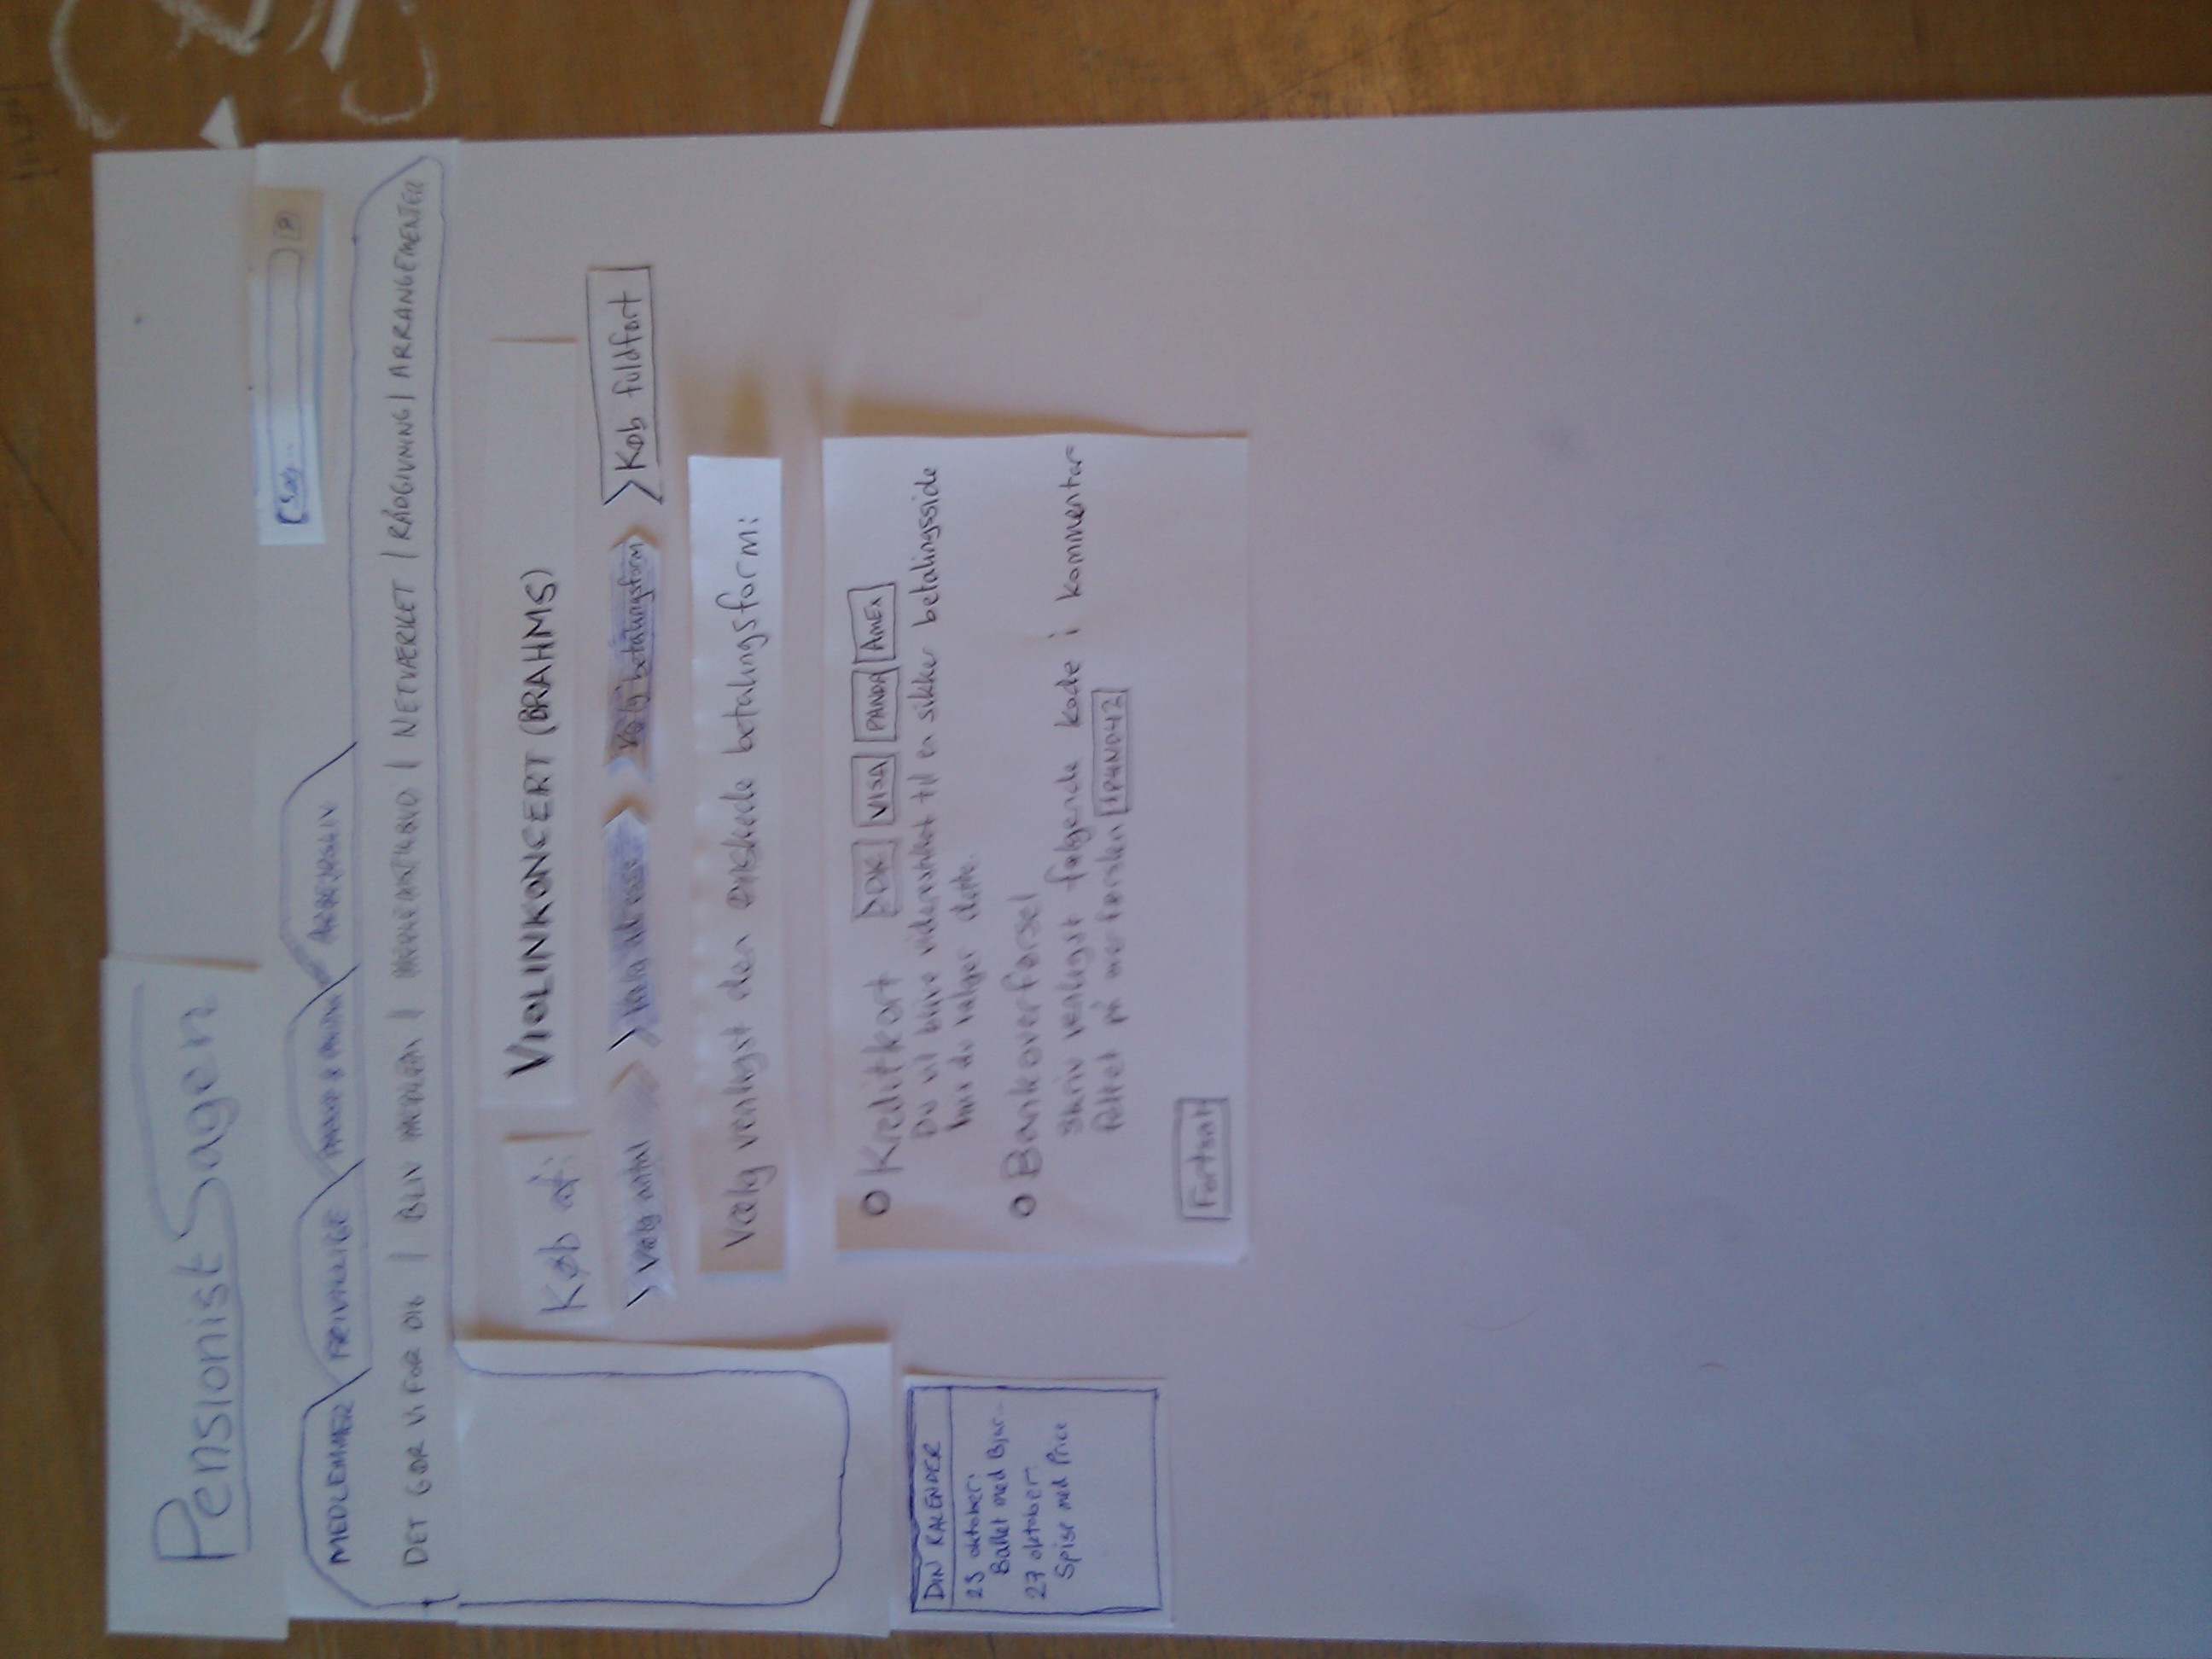 PensionistSagen
Søg...
MEDLEMMER FRIVILLIGE PRESSE & ARBEJDSLIV
DET GØR VI FOR DIG | BLIV MEDLEM | MEDLEMSTILBUD | NETVÆRKET | RÅDGIVNING | ARRANGEMENTER
Køb af: VIOLINKONCERT (BRAHMS)
Vælg antal Vælg adresse Vælg betalingsform Køb fuldført
Vælg venligst den ønskede betalingsform:
Kreditkort DK VISA PANDA AMEX
Du vil blive viderestillet til en sikker betalingsside
hvis du vælger dette.
Bankoverførsel
Skriv venligst følgende kode i kommentar-
feltet på overførslen 1P4ND42
Fortsæt
DIN KALENDER
23 oktober:
Ballet med Bjar...
27 oktober:
Spise med Price